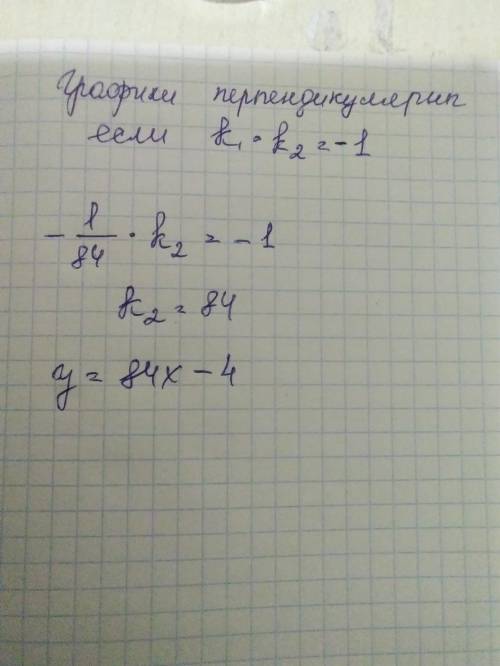 Графики перпендикулярнп
если k₁ · k₂ = -1
- 1/84 · k₂ = - 1
k₂ = 84
y = 84x - 4